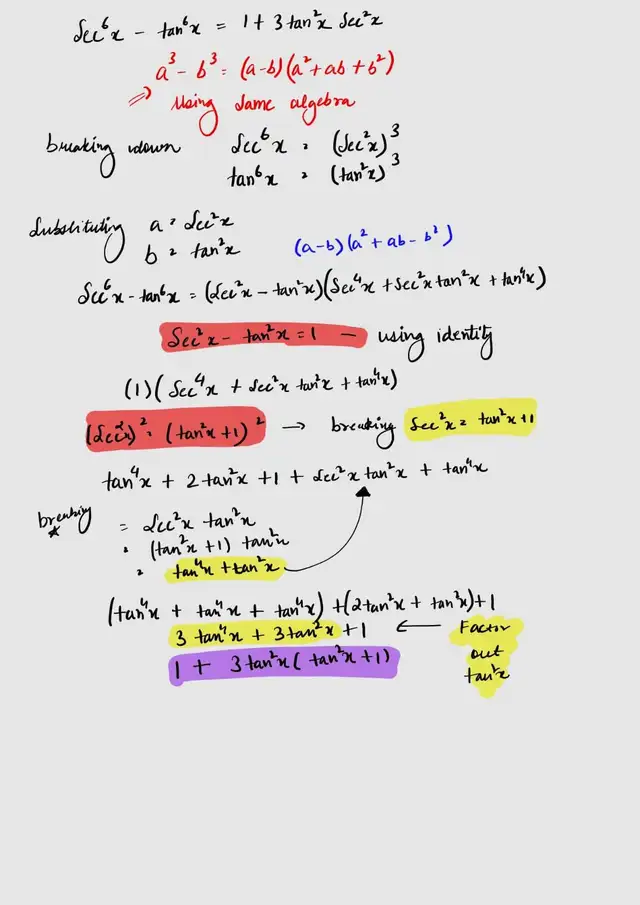 Sec⁶x − tan⁶x = 1 + 3tan²x Sec²x
a³ − b³ = (a−b)(a² + ab + b²)
⇒ Using same algebra
breaking down Sec⁶x = (Sec²x)³
tan⁶x = (tan²x)³
Substituting a = Sec²x
b = tan²x (a−b)(a² + ab − b²)
Sec⁶x − tan⁶x = (Sec²x − tan²x)(Sec⁴x + Sec²x tan²x + tan⁴x)
Sec²x − tan²x = 1 — using identity
(1)(Sec⁴x + Sec²x tan²x + tan⁴x)
(Sec²x)² = (tan²x + 1)² → breaking Sec²x = tan²x + 1
tan⁴x + 2tan²x + 1 + Sec²x tan²x + tan⁴x
breaking = Sec²x tan²x
= (tan²x + 1) tan²x
= tan⁴x + tan²x
(tan⁴x + tan⁴x + tan⁴x) + (2tan²x + tan²x) + 1
3 tan⁴x + 3tan²x + 1 ← Factor
out
1 + 3tan²x (tan²x + 1)
tan²x